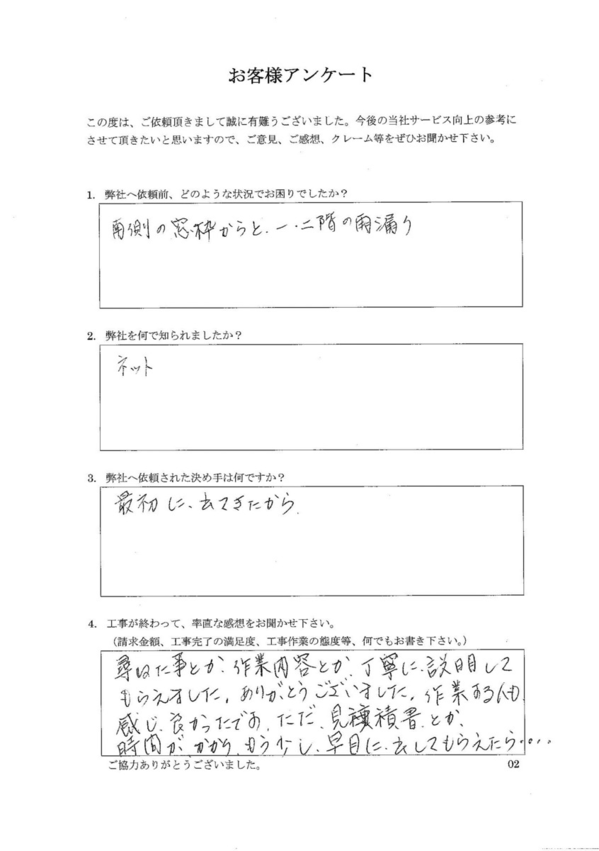 お客様アンケート
この度は、ご依頼頂きまして誠に有難うございました。今後の当社サービス向上の参考に
させて頂きたいと思いますので、ご意見、ご感想、クレーム等をぜひお聞かせ下さい。
1. 弊社へ依頼前、どのような状況でお困りでしたか?
側の窓枠からと、一・二階の雨漏り
2. 弊社を何で知られましたか?
ネット
3. 弊社へ依頼された決め手は何ですか?
最初に、出てきたから
4. 工事が終わって、率直な感想をお聞かせ下さい。
(請求金額、工事完了の満足度、工事作業の態度等、何でもお書き下さい。)
尋ねた事とか、作業内容とか、丁寧に、説明して
もらえました。ありがとうございました。作業する人も
感じ、良かったです。ただ、見積書、とか、
時間が、かかり、もう少し、早目に、出してもらえたら・・・・
ご協力ありがとうございました。
02